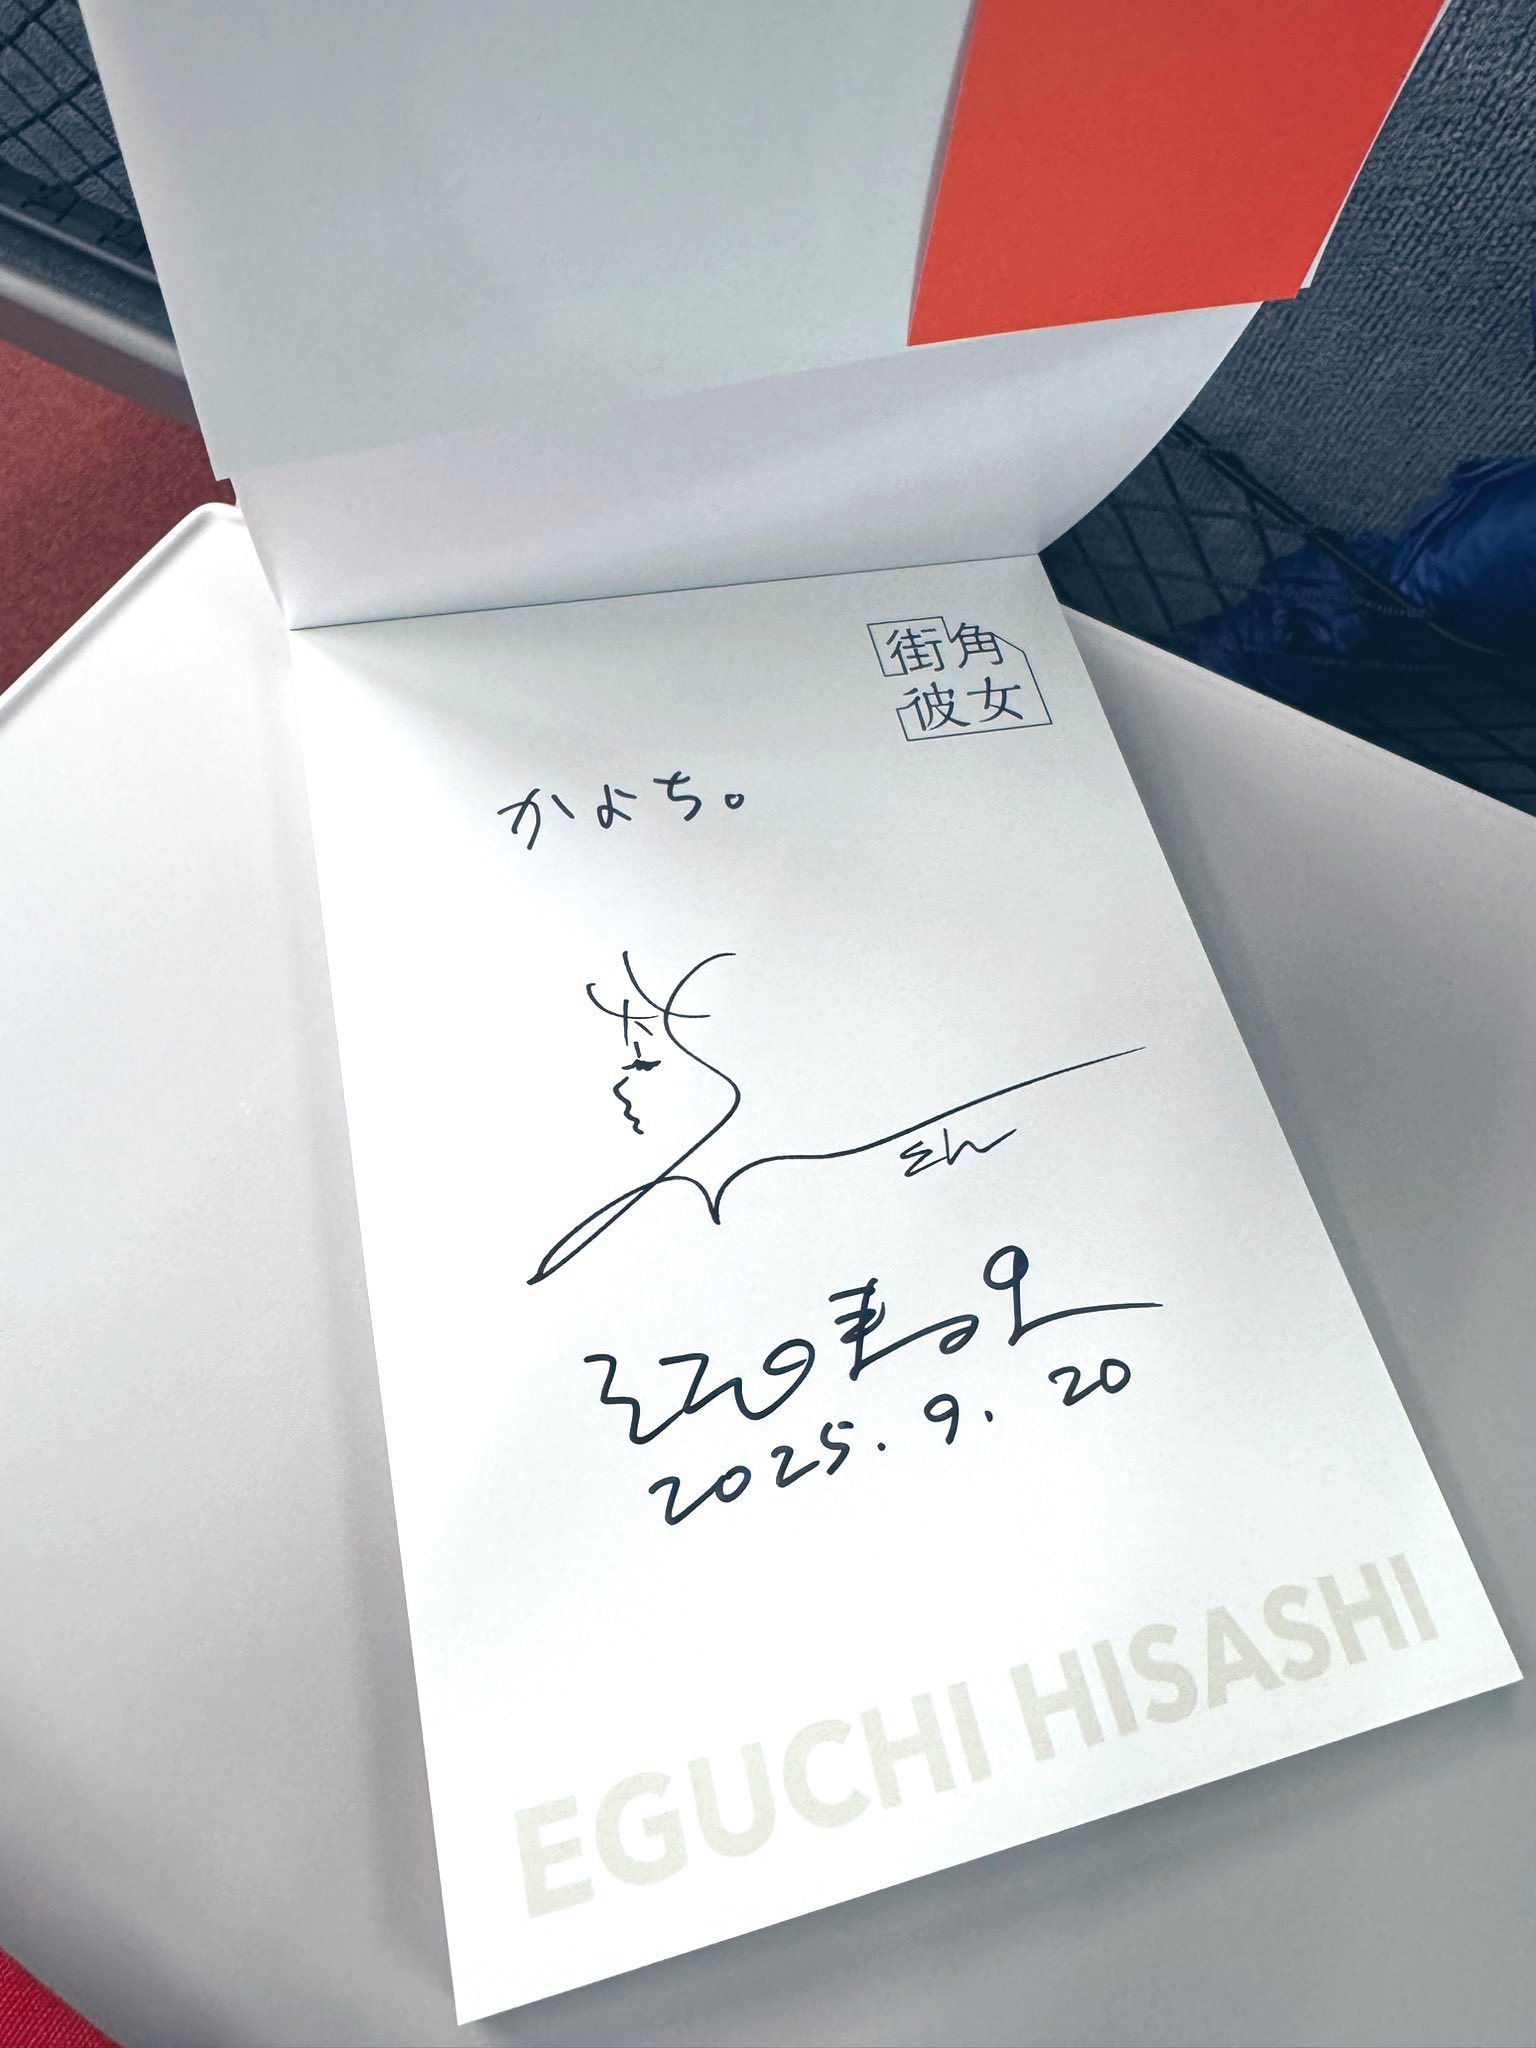 街角
彼女
かよち。
江口寿史
2025.9.20
EGUCHI HISASHI